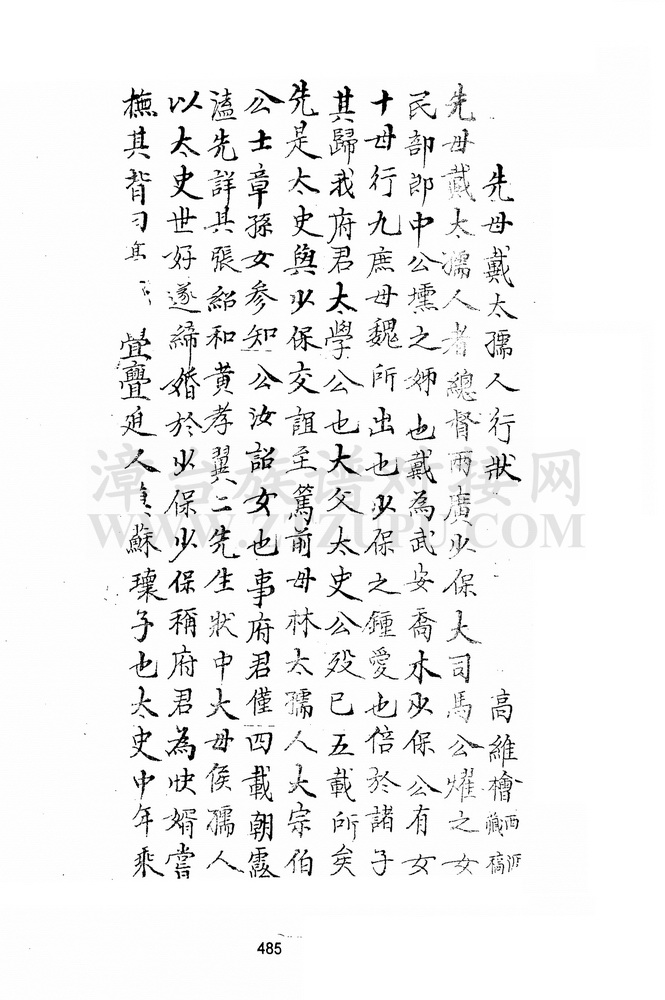 先母戴太孺人行狀
高維檜 西涯藏稿
先母戴太孺人者總督兩廣少保大司馬公燿之女
民部郎中公壎之姊也戴為武安喬木少保公有女
十母行九庶母魏所出也少保之鍾愛也倍於諸子
其歸我府君太學公也大父太史公歿已五載所矣
先是太史與少保交誼至篤前母林太孺人大宗伯
公士章孫女參知公汝詔女也事府君僅四載朝露
溘先詳其張紹和黃孝翼二先生狀中大母侯孺人
以太史世好遂締婚於少保少保稱府君為快婿嘗
撫其背曰其 亹亹廹人 蘇瓌子也太史中年乘
漳台族谱对接网
WWW.ZTZUPU.COM
485